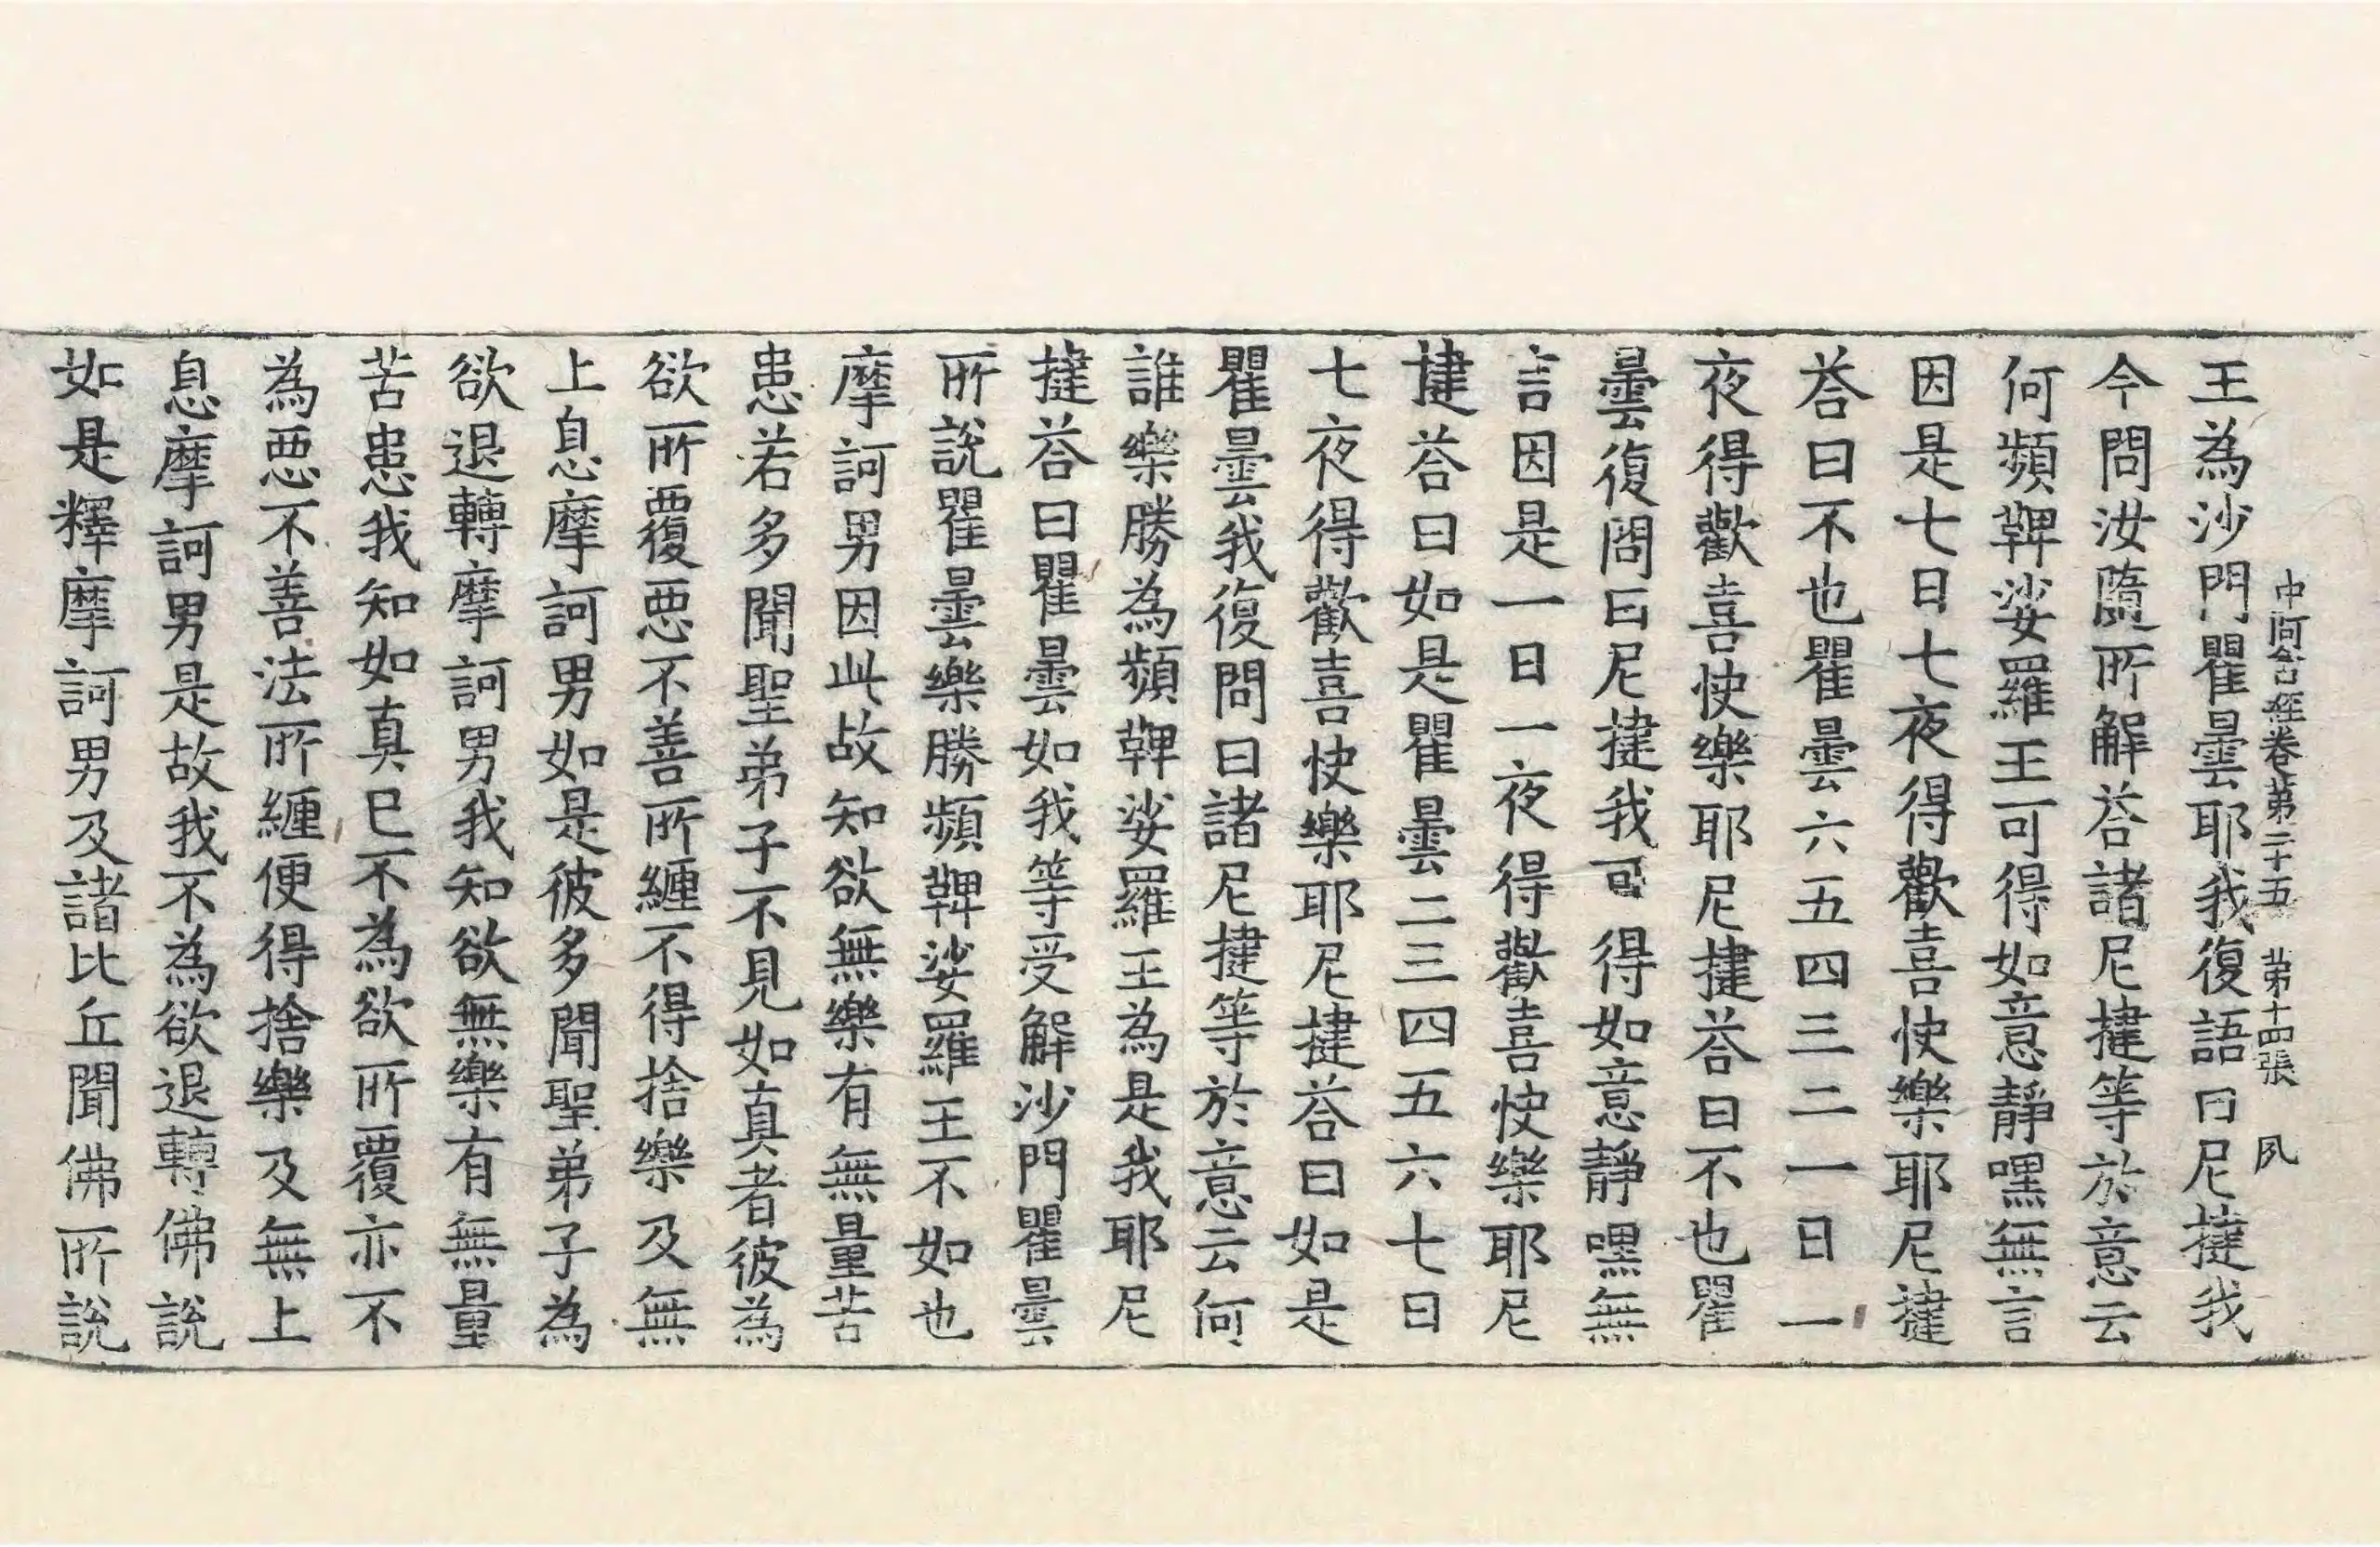 中阿含經卷第二十五 第十四張 夙
王為沙門瞿曇耶我復語曰尼揵我
今問汝隨所解荅諸尼揵等於意云
何頻鞞娑羅王可得如意靜嘿無言
因是七日七夜得歡喜快樂耶尼揵
荅曰不也瞿曇六五四三二一日一
夜得歡喜快樂耶尼揵荅曰不也瞿
曇復問曰尼揵我可得如意靜嘿無
言因是一日一夜得歡喜快樂耶尼
揵荅曰如是瞿曇二三四五六七日
七夜得歡喜快樂耶尼揵荅曰如是
瞿曇我復問曰諸尼揵等於意云何
誰樂勝為頻鞞娑羅王為是我耶尼
揵荅曰瞿曇如我等受解沙門瞿曇
所說瞿曇樂勝頻鞞娑羅王不如也
摩訶男因此故知欲無樂有無量苦
患若多聞聖弟子不見如真者彼為
欲所覆惡不善所纏不得捨樂及無
上息摩訶男如是彼多聞聖弟子為
欲退轉摩訶男我知欲無樂有無量
苦患我知如真已不為欲所覆亦不
為惡不善法所纏便得捨樂及無上
息摩訶男是故我不為欲退轉佛說
如是釋摩訶男及諸比丘聞佛所說